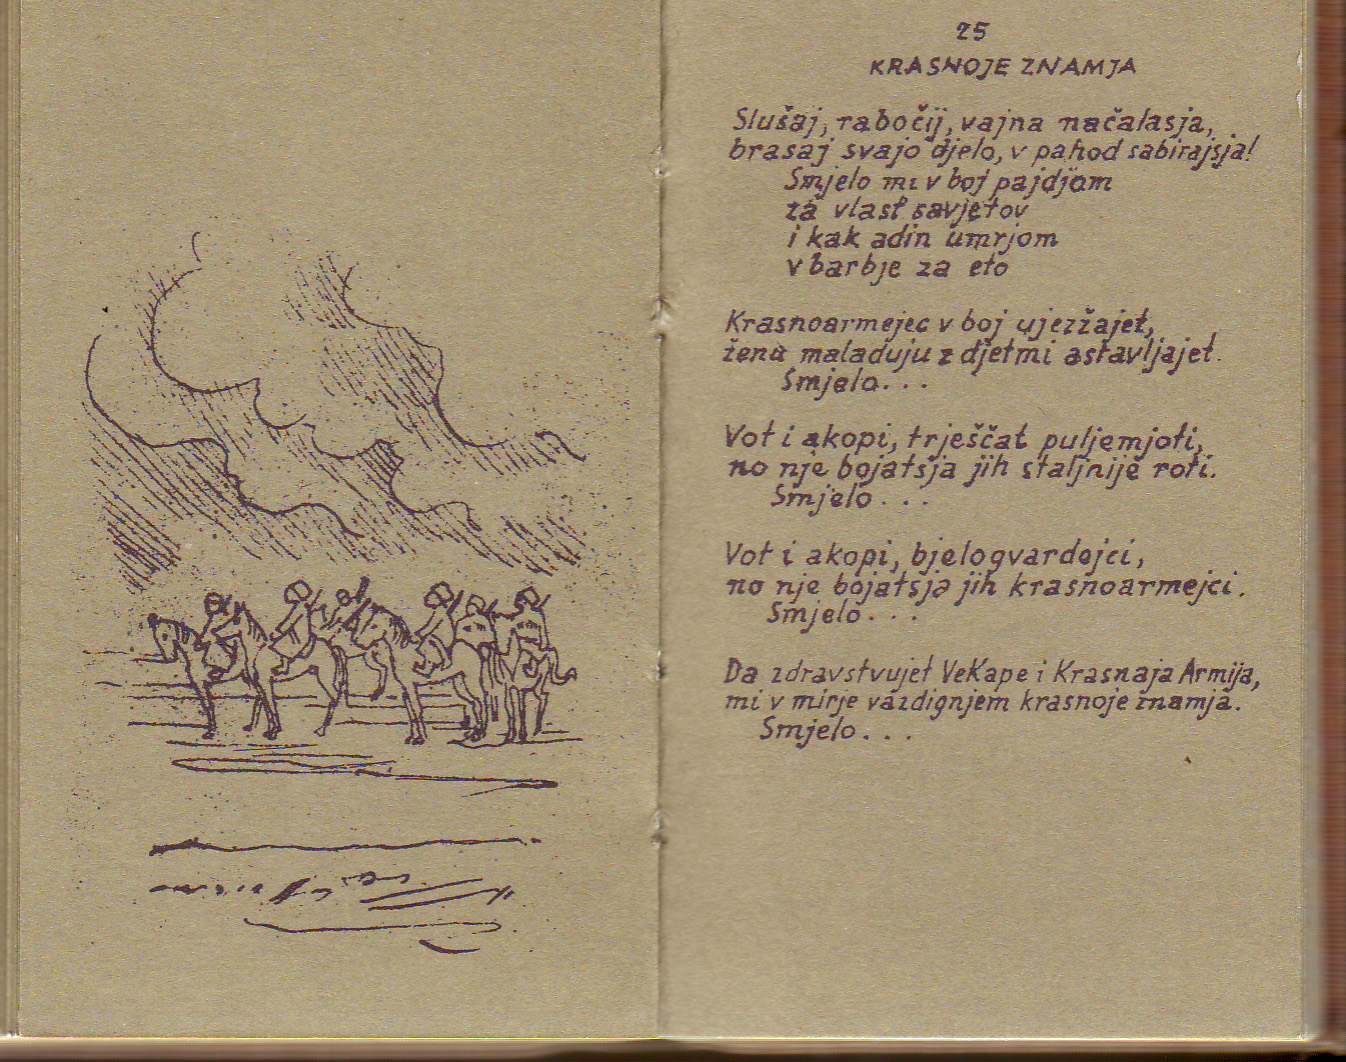 25
KRASNOJE ZNAMJA
Slušaj, rabočij, vajna načalasja,
brasaj svajo djelo, v pahod sabirajsja!
Smjelo mi v boj pajdjom
za vlast savjetov
i kak adin umrjom
v barbje za eto
Krasnoarmejec v boj ujezžajet,
ženu maladuju z djetmi astavljajet.
Smjelo...
Vot i akopi, trješčat puljemjoti,
no nje bojatsja jih staljnije roti.
Smjelo...
Vot i akopi, bjelogvardejci,
no nje bojatsja jih krasnoarmejci.
Smjelo...
Da zdravstvujet VeKape i Krasnaja Armija,
mi v mirje vazdignjem krasnoje znamja.
Smjelo...